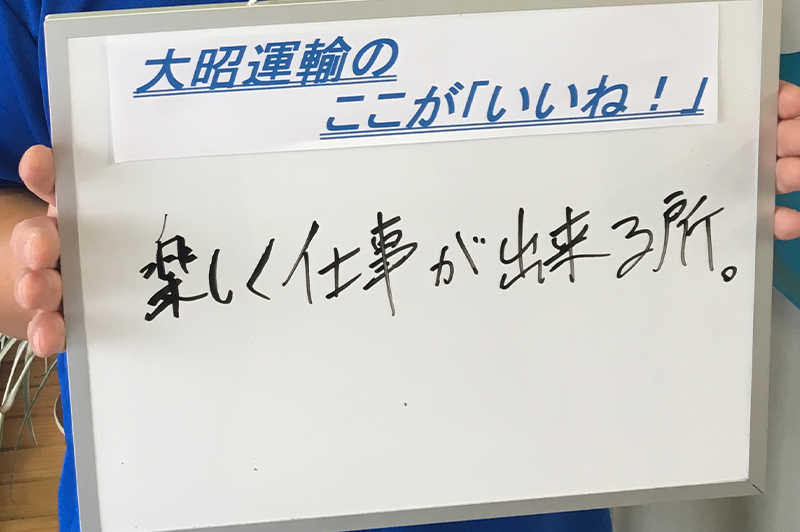 大昭運輸の
ここが「いいね！」
楽しく仕事が出来る所。